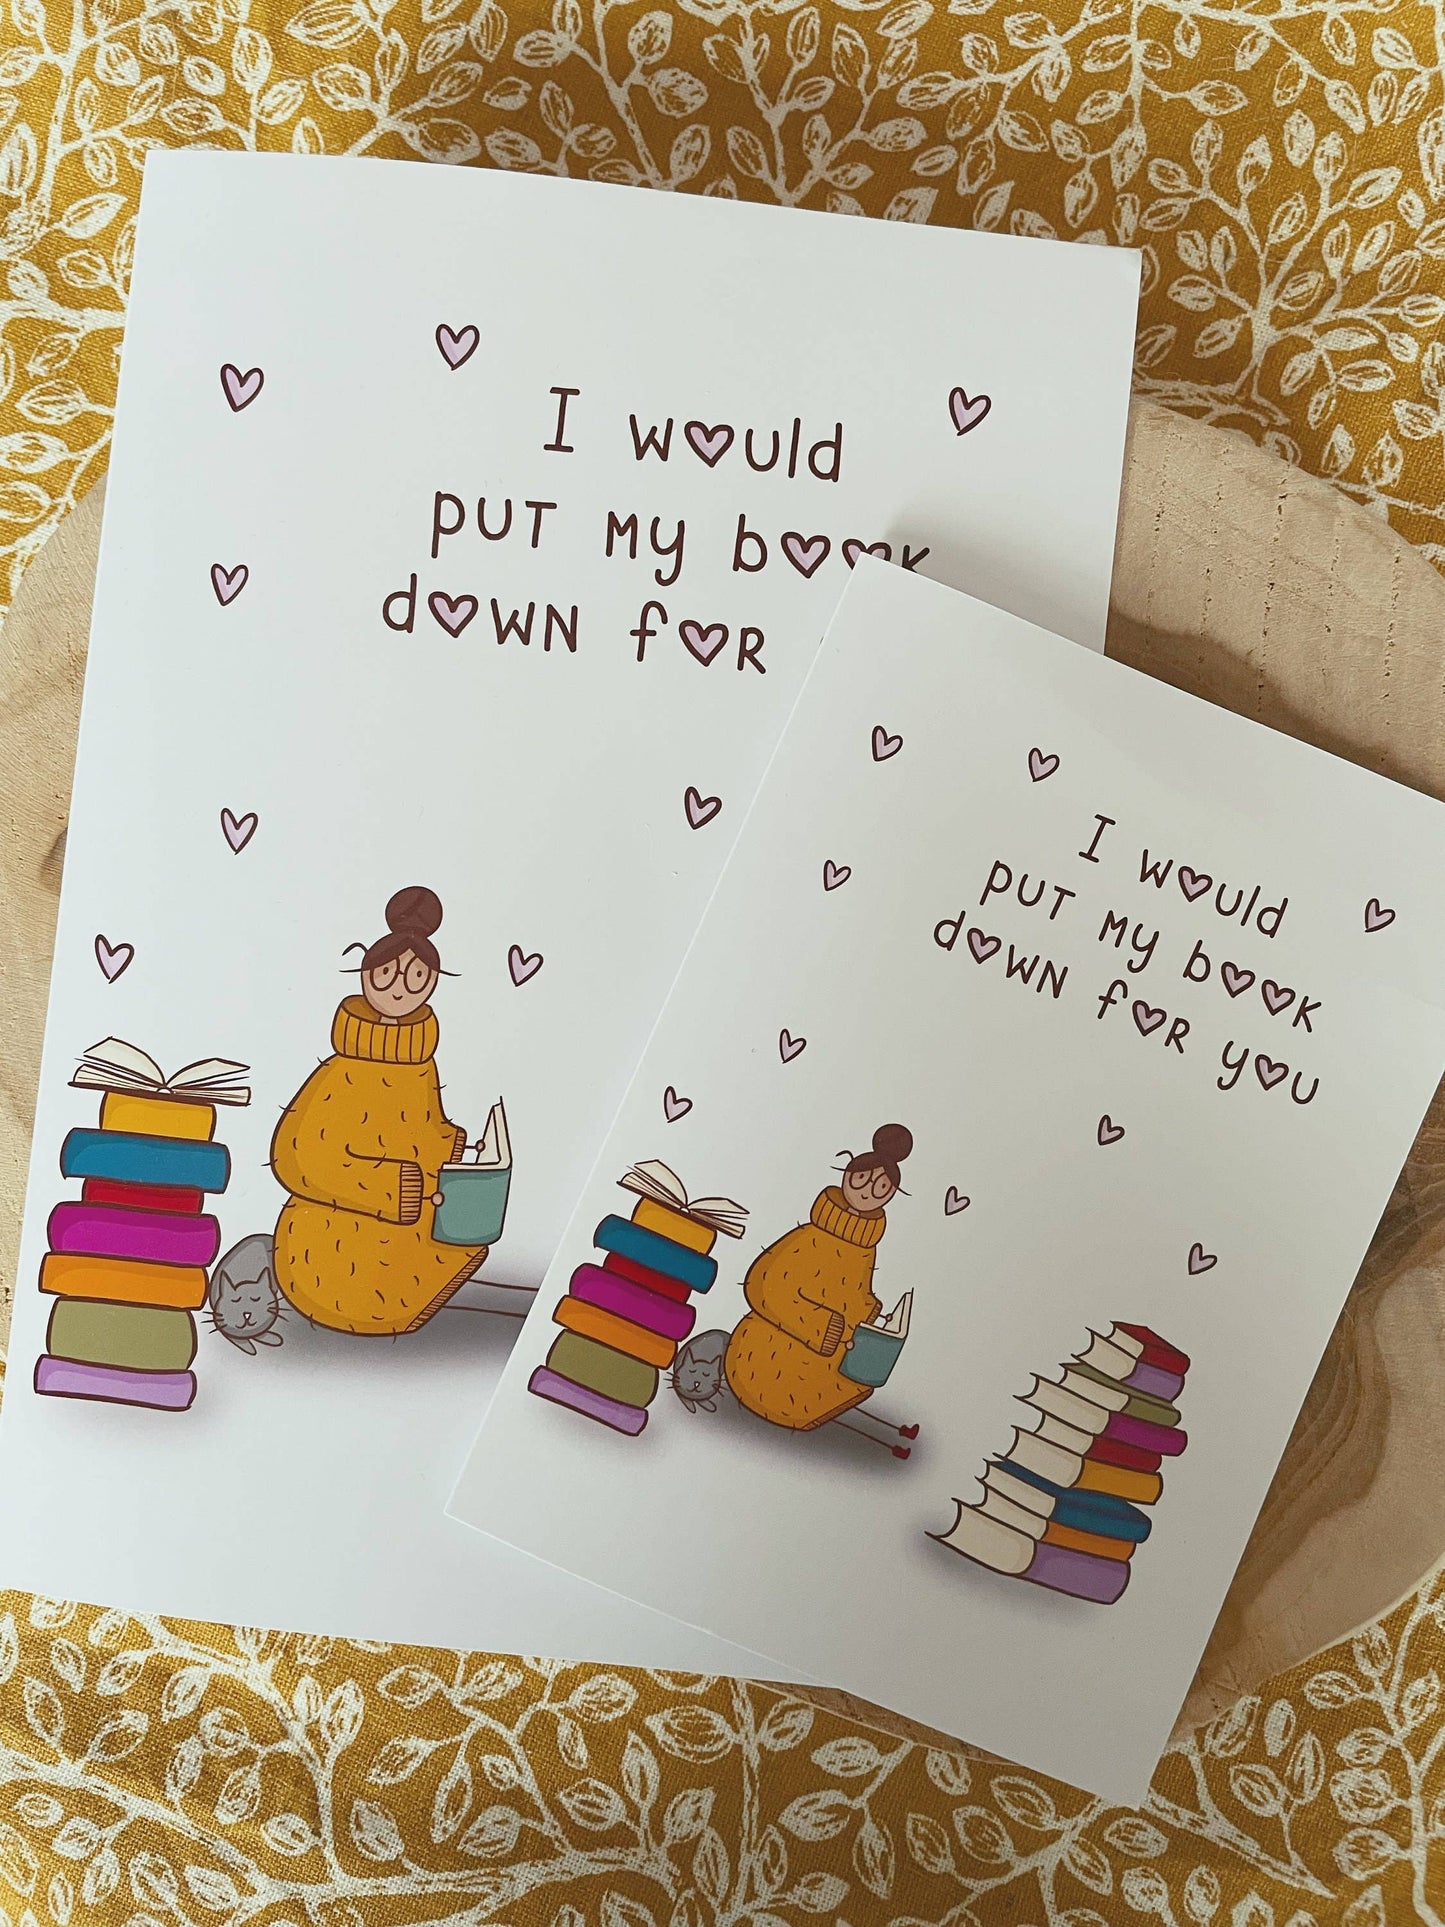 I would
put my book
down for
I would
put my book
down for you